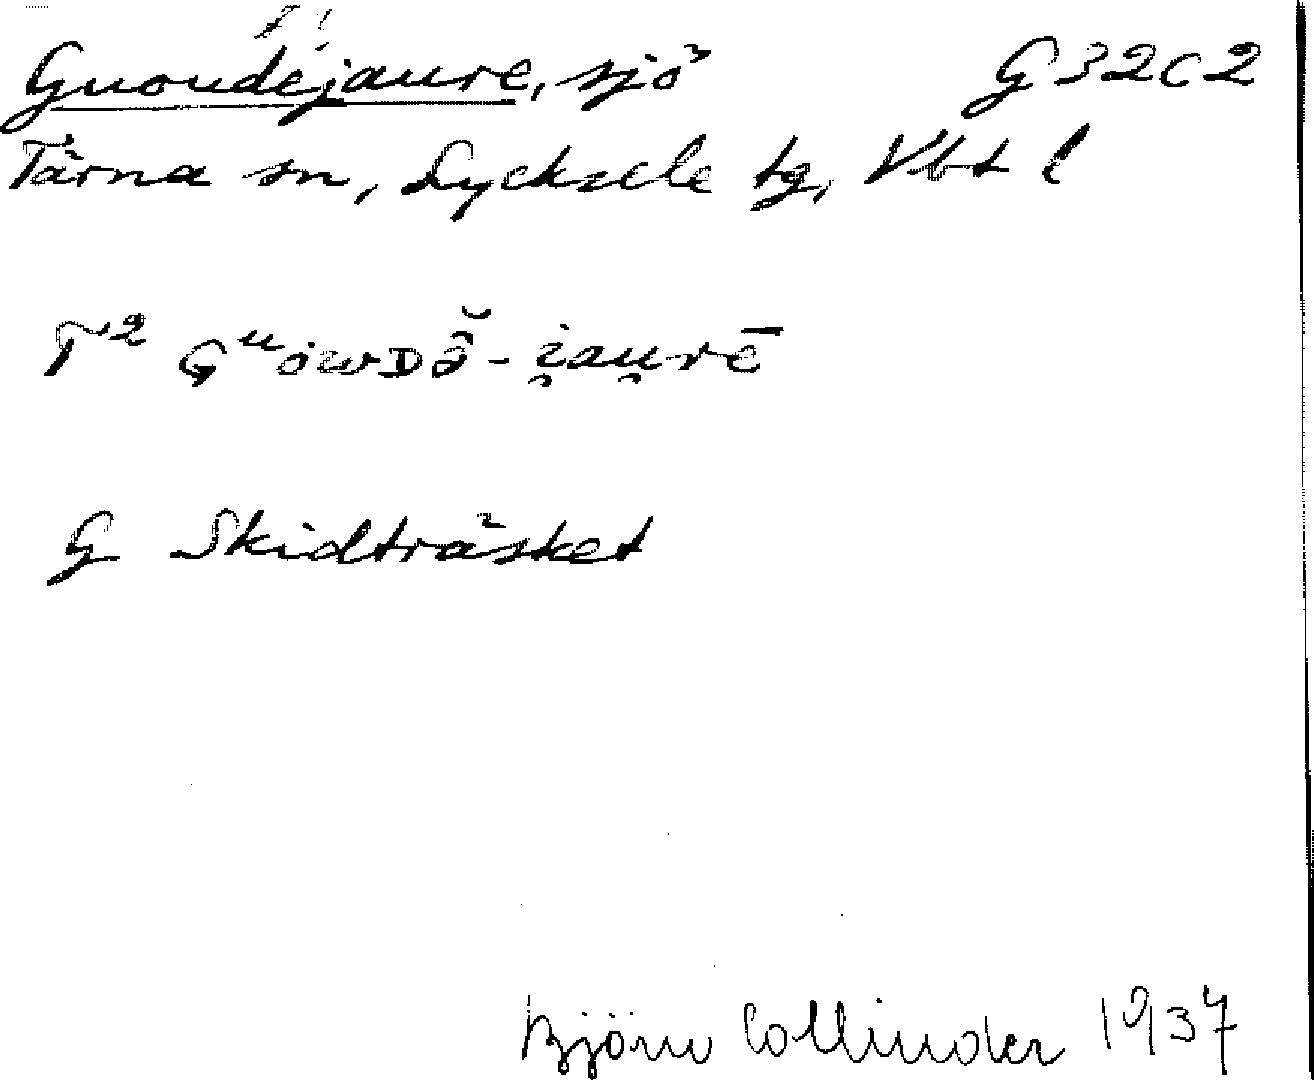 Guoudejaure, sjö G 32 c 2
Tärna sn, Lycksele tg, Vbt l
T² Gᵘȯwᴅậ̆-i̯au̯rē
G Skidträsket
Björn Collinder 1937